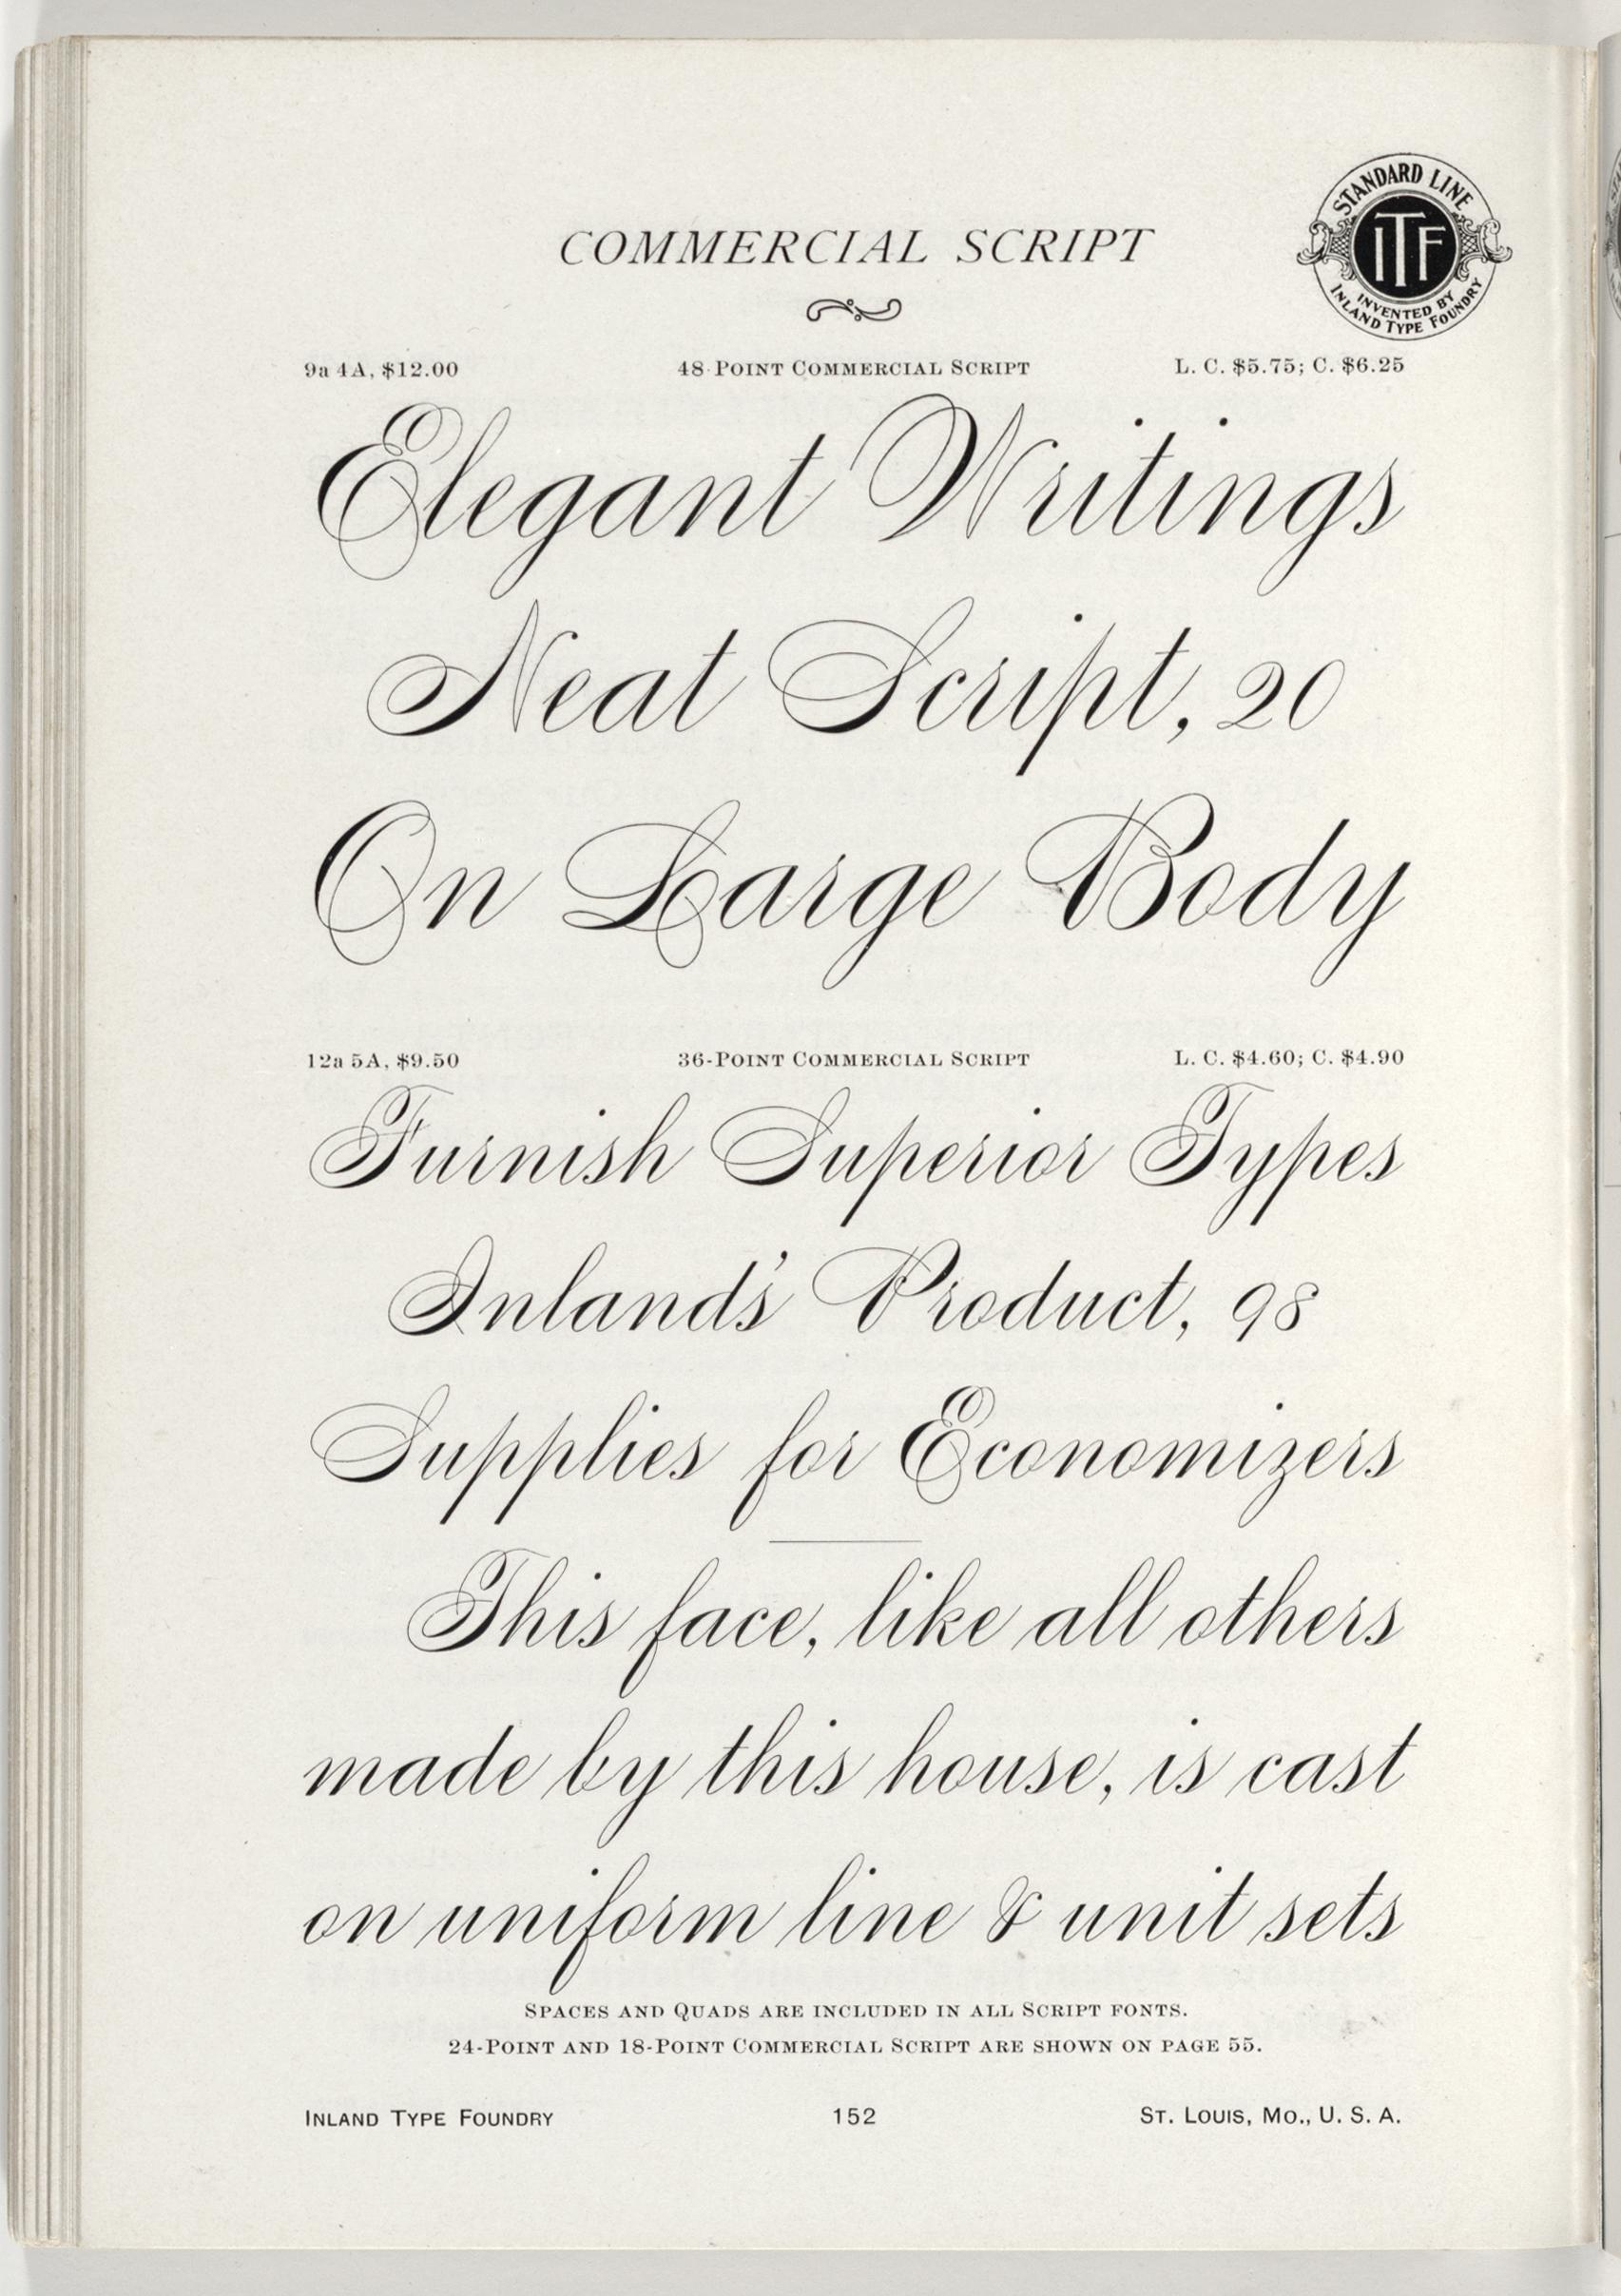 COMMERCIAL SCRIPT
STANDARD LINE
ITF
INVENTED BY
INLAND TYPE FOUNDRY
9a 4A, $12.00 48-POINT COMMERCIAL SCRIPT L. C. $5.75; C. $6.25
Elegant Writings
Neat Script, 20
On Large Body
12a 5A, $9.50 36-POINT COMMERCIAL SCRIPT L. C. $4.60; C. $4.90
Furnish Superior Types
Inland's Product, 98
Supplies for Economizers
This face, like all others
made by this house, is cast
on uniform line & unit sets
SPACES AND QUADS ARE INCLUDED IN ALL SCRIPT FONTS.
24-POINT AND 18-POINT COMMERCIAL SCRIPT ARE SHOWN ON PAGE 55.
INLAND TYPE FOUNDRY 152 ST. LOUIS, MO., U. S. A.